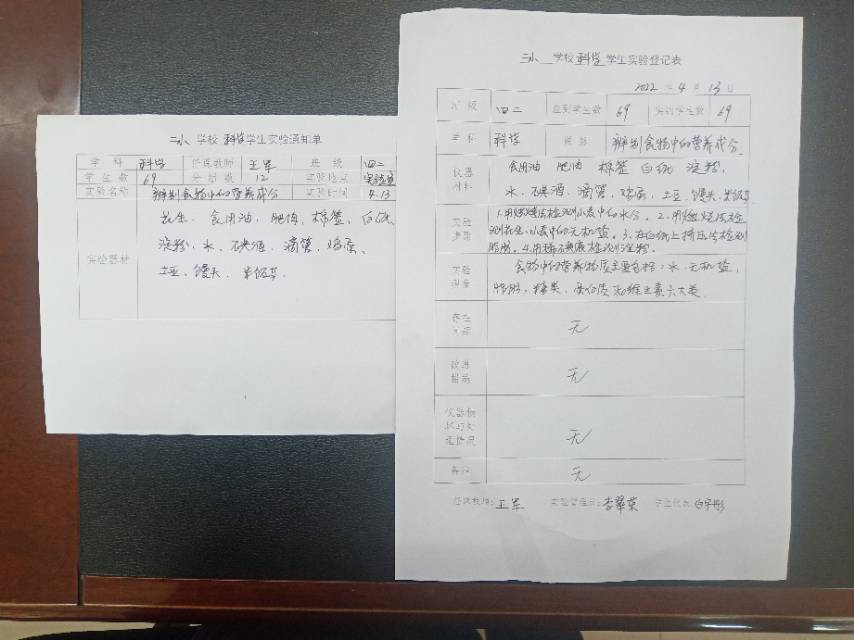 二小 学校 科学 学生实验通知单
学科 科学 任课教师 王军 班级 四二
学生数 69 分组数 12 实验地点 实验室
实验名称 辨别食物中的营养成分 实验时间 4.13
实验器材
花生、食用油、肥肉、棉签、白纸
淀粉、水、碘酒、滴管、鸡蛋、
土豆、馒头、米饭等.
二小 学校 科学 学生实验登记表
2022 年 4 月 13 日
班级 四二 应到学生数 69 实到学生数 69
学科 科学 辨别食物中的营养成分
仪器材料
食用油 肥肉 棉签 白纸 淀粉、
水、碘酒、滴管、鸡蛋、土豆、馒头、米饭等
实验步骤
1.用烧烤法检测小麦中的水分。2.用燃烧法检
测花生、小麦中的无机盐。3.在白纸上挤压法检测
脂肪。4.用稀碘液检测淀粉。
实验
食物中的营养物质主要包括：水、无机盐、
脂肪、糖类、蛋白质和维生素六大类.
存在问题 无
改进措施 无
无
备注 无
任课教师：王军 实验管理员：李翠荣 学生代表